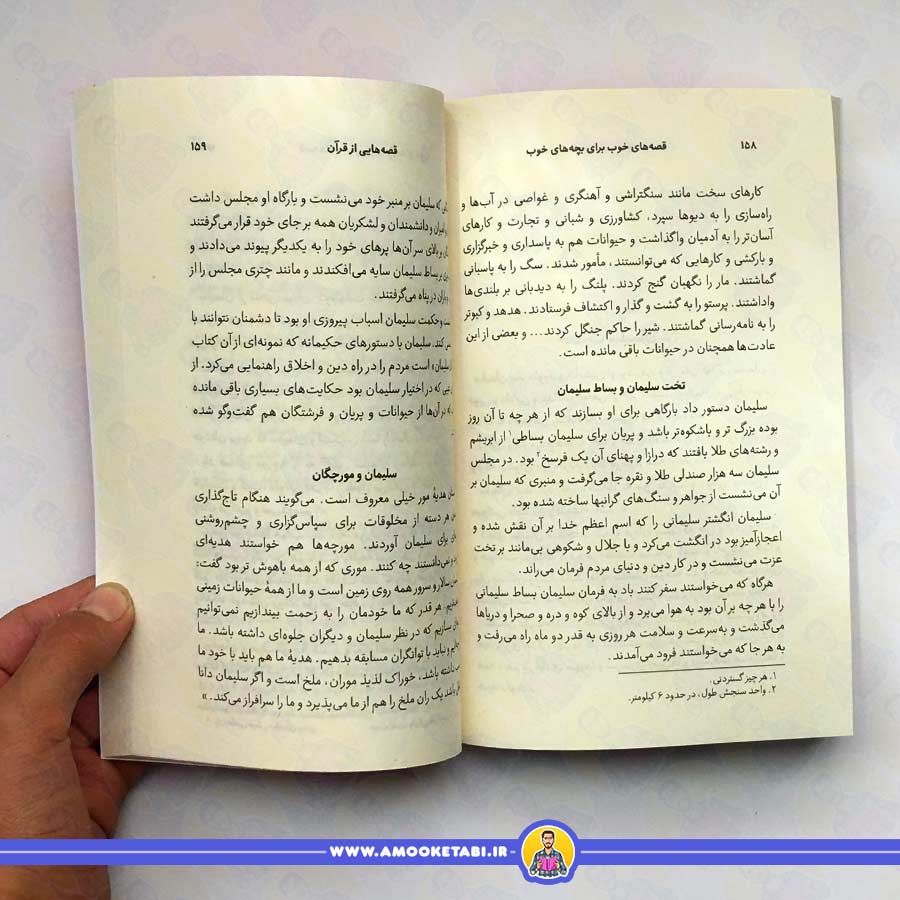 ۱۵۸
قصه‌های خوب برای بچه‌های خوب
کارهای سخت مانند سنگتراشی و آهنگری و غواصی در آب‌ها و
راه‌سازی را به دیوها سپرد. کشاورزی و شبانی و تجارت و کارهای
آسان‌تر را به آدمیان واگذاشت و حیوانات هم به پاسداری و خبرگزاری
و بارکشی و کارهایی که می‌توانستند، مأمور شدند. سگ را به پاسبانی
گماشتند. مار را نگهبان گنج کردند. پلنگ را به دیدبانی بر بلندی‌ها
واداشتند. پرستو را به گشت و گذار و اکتشاف فرستادند. هدهد و کبوتر
را به نامه‌رسانی گماشتند. شیر را حاکم جنگل کردند... و بعضی از این
عادت‌ها همچنان در حیوانات باقی مانده است.
تخت سلیمان و بساط سلیمان
سلیمان دستور داد بارگاهی برای او بسازند که از هر چه تا آن روز
بوده بزرگ تر و باشکوه‌تر باشد و پریان برای سلیمان بساطی۱ از ابریشم
و رشته‌های طلا بافتند که درازا و پهنای آن یک فرسخ۲ بود. در مجلس
سلیمان سه هزار صندلی طلا و نقره جا می‌گرفت و منبری که سلیمان بر
آن می‌نشست از جواهر و سنگ‌های گرانبها ساخته شده بود.
سلیمان انگشتر سلیمانی را که اسم اعظم خدا بر آن نقش شده و
اعجازآمیز بود در انگشت می‌کرد و با جلال و شکوهی بی‌مانند بر تخت
عزت می‌نشست و در کار دین و دنیای مردم فرمان می‌راند.
هرگاه که می‌خواستند سفر کنند باد به فرمان سلیمان بساط سلیمانی
را با هر چه بر آن بود به هوا می‌برد و از بالای کوه و دره و صحرا و دریاها
می‌گذشت و به‌سرعت و سلامت هر روزی به قدر دو ماه راه می‌رفت و
به هر جا که می‌خواستند فرود می‌آمدند.
۱. هر چیز گستردنی.
۲. واحد سنجش طول، در حدود ۶ کیلومتر.
قصه‌هایی از قرآن
۱۵۹
که سلیمان بر منبر خود می‌نشست و بارگاه او مجلس داشت
و دانشمندان و لشکریان همه بر جای خود قرار می‌گرفتند
بر بالای سر آن‌ها پرهای خود را به یکدیگر پیوند می‌دادند و
بر بساط سلیمان سایه می‌افکندند و مانند چتری مجلس را از
باران در پناه می‌گرفتند.
و حکمت سلیمان اسباب پیروزی او بود تا دشمنان نتوانند با
کنند. سلیمان با دستورهای حکیمانه که نمونه‌ای از آن کتاب
است مردم را در راه دین و اخلاق راهنمایی می‌کرد. از
که در اختیار سلیمان بود حکایت‌های بسیاری باقی مانده
در آن‌ها از حیوانات و پریان و فرشتگان هم گفت‌وگو شده
سلیمان و مورچگان
هدیهٔ مور خیلی معروف است. می‌گویند هنگام تاج‌گذاری
هر دسته از مخلوقات برای سپاس‌گزاری و چشم‌روشنی
برای سلیمان آوردند. مورچه‌ها هم خواستند هدیه‌ای
نمی‌دانستند چه کنند. موری که از همه باهوش تر بود گفت:
سالار و سرور همه روی زمین است و ما از همهٔ حیوانات زمینی
هر قدر که ما خودمان را به زحمت بیندازیم نمی‌توانیم
بسازیم که در نظر سلیمان و دیگران جلوه‌ای داشته باشد. ما
و نباید با توانگران مسابقه بدهیم. هدیهٔ ما هم باید با خود ما
داشته باشد، خوراک لذیذ موران، ملخ است و اگر سلیمان دانا
باشد یک ران ملخ را هم از ما می‌پذیرد و ما را سرافراز می‌کند.»
WWW.AMOOKETABI.IR